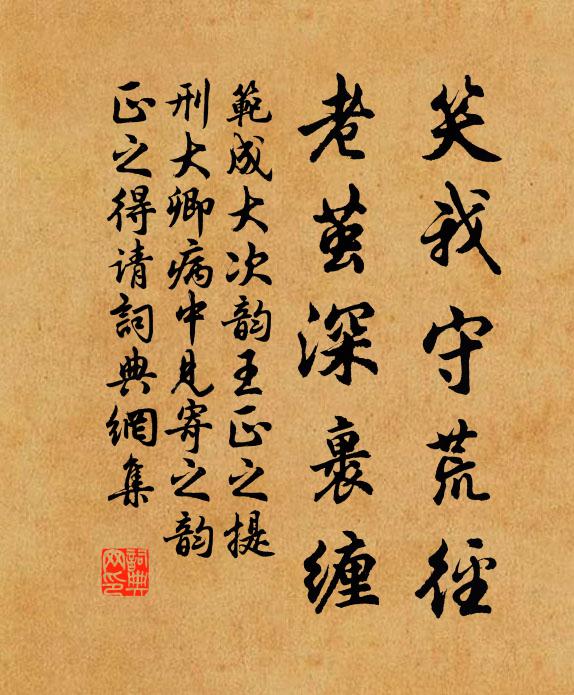 笑我守荒径
老茧深裹缠
範成大次韵王正之提
刑大卿病中见寄之韵
正之得请詞典網集
詞典網印